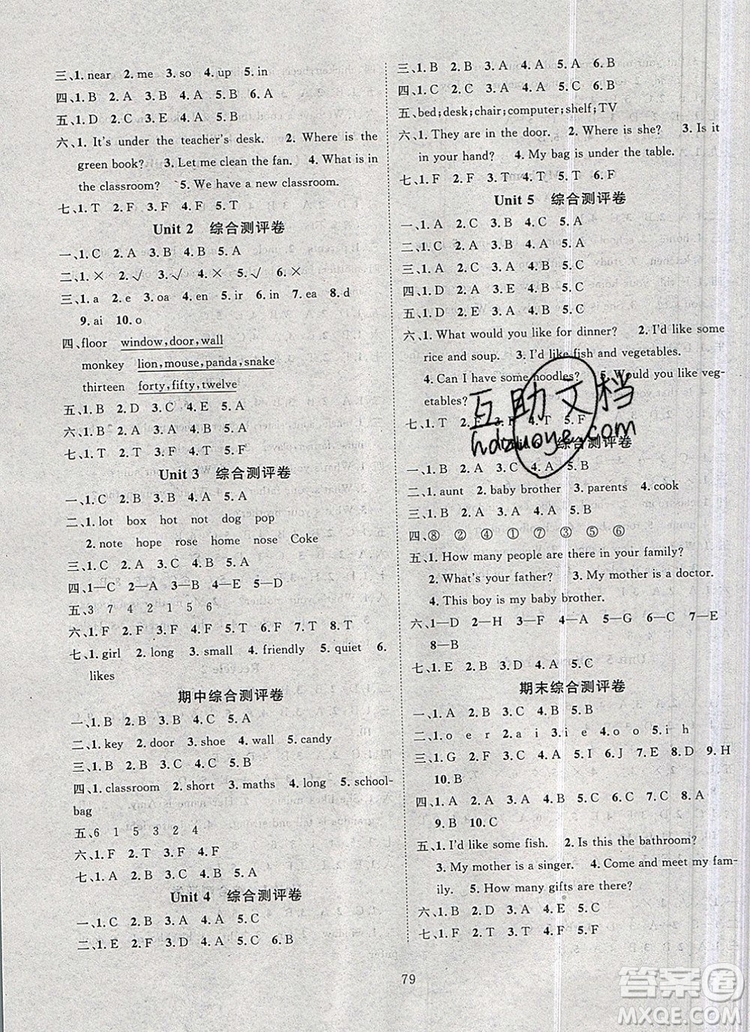 三、1. near　2. me　3. so　4. up　5. in
四、1. B　2. A　3. B　4. A　5. B
五、1. D　2. C　3. A　4. E　5. B
六、1. It's under the teacher's desk.　2. Where is the
green book?　3. Let me clean the fan.　4. What is in
the classroom?　5. We have a new classroom.
七、1. T　2. F　3. F　4. F　5. T
Unit 2　综合测评卷
一、1. C　2. B　3. A　4. B　5. A
二、1. ×　2. √　3. √　4. ×　5. √
三、1. a　2. e　3. o　4. a　5. en　6. ir　7. a　8. d
9. ai　10. o
四、floor　window,door,wall
monkey　lion,mouse,panda,snake
thirteen　forty,fifty,twelve
五、1. B　2. D　3. C　4. E　5. A
六、1. B　2. B　3. A　4. A　5. B
七、1. T　2. F　3. T　4. F　5. F
Unit 3　综合测评卷
一、1. C　2. B　3. A　4. A　5. B
二、1. not　lot　box　hot　dog　pop
2. note　hope　rose　home　nose　Coke
三、1. A　2. B　3. C　4. A　5. B
四、1—C　2—A　3—E　4—B　5—D
五、3　7　4　2　1　5　6
六、1. B　2. A　3. A　4. B　5. A　6. B
七、1. T　2. F　3. T　4. F　5. T　6. T
八、1. girl　2. long　3. small　4. friendly　5. quiet　6.
likes
期中综合测评卷
一、1. A　2. B　3. B　4. C　5. A
二、1. key　2. door　3. shoe　4. wall　5. candy
三、1. B　2. A　3. A　4. C　5. A
四、1. classroom　2. short　3. maths　4. long　5. school-
bag
五、6　1　5　3　2　4
六、1. F　2. T　3. T　4. F　5. T
七、1. B　2. A　3. A　4. B　5. A
Unit 4　综合测评卷
一、1. C　2. B　3. A　4. A　5. C
二、1. A　2. B　3. A　4. C　5. C　6. B
三、1. B　2. B　3. A　4. B　5. A
四、1. B　2. A　3. C　4. A　5. C
五、bed;desk;chair;computer;shelf;TV
六、1. They are in the door.　2. Where is she?　3. Is it
in your hand?　4. My bag is under the table.
七、1. T　2. F　3. T　4. F　5. F
Unit 5　综合测评卷
一、1. A　2. C　3. B　4. C　5. A
二、1. C　2. C　3. A　4. B　5. C
三、1. A　2. B　3. A　4. B　5. C
四、1. D　2. C　3. E　4. A　5. B
五、1. B　2. A　3. C　4. A　5. C
六、1. What would you like for dinner?　2. I'd like some
rice and soup.　3. I'd like fish and vegetables.
4. Can I have some noodles?　5. Would you like veg-
etables?
七、1. F　2. T　3. F　4. T　5. T
综合测评卷
一、1. B　2. A　3. A　4. A　5. B
二、1. aunt　2. baby brother　3. parents　4. cook
三、1. B　2. A　3. A　4. C　5. A
四、⑧　②　④　①　⑦　③　⑤　⑥
五、1. How many people are there in your family?
2. What's your father?　3. My mother is a doctor.
4. This boy is my baby brother.
六、1—D　2—A　3—F　4—C　5—G　6—H　7—E
8—B
七、1. C　2. B　3. B　4. A　5. A
期末综合测评卷
一、1. A　2. B　3. B　4. C　5. A
二、1. o　e r　2. a i　3. i e　4. o o　5. i h
三、1. G　2. F　3. I　4. J　5. E　6. C　7. A　8. D　9. H
10. B
四、1. C　2. A　3. A　4. C　5. C　6. B　7. A　8. A
五、1. I'd like some fish.　2. Is this the bathroom?
3. My mother is a singer.　4. Come and meet my fam-
ily.　5. How many gifts are there?
六、1. C　2. A　3. D　4. E　5. B
七、1. F　2. F　3. T　4. T　5. T
79
互助文档
hdzuoye.com
答案圈
MXQE.COM